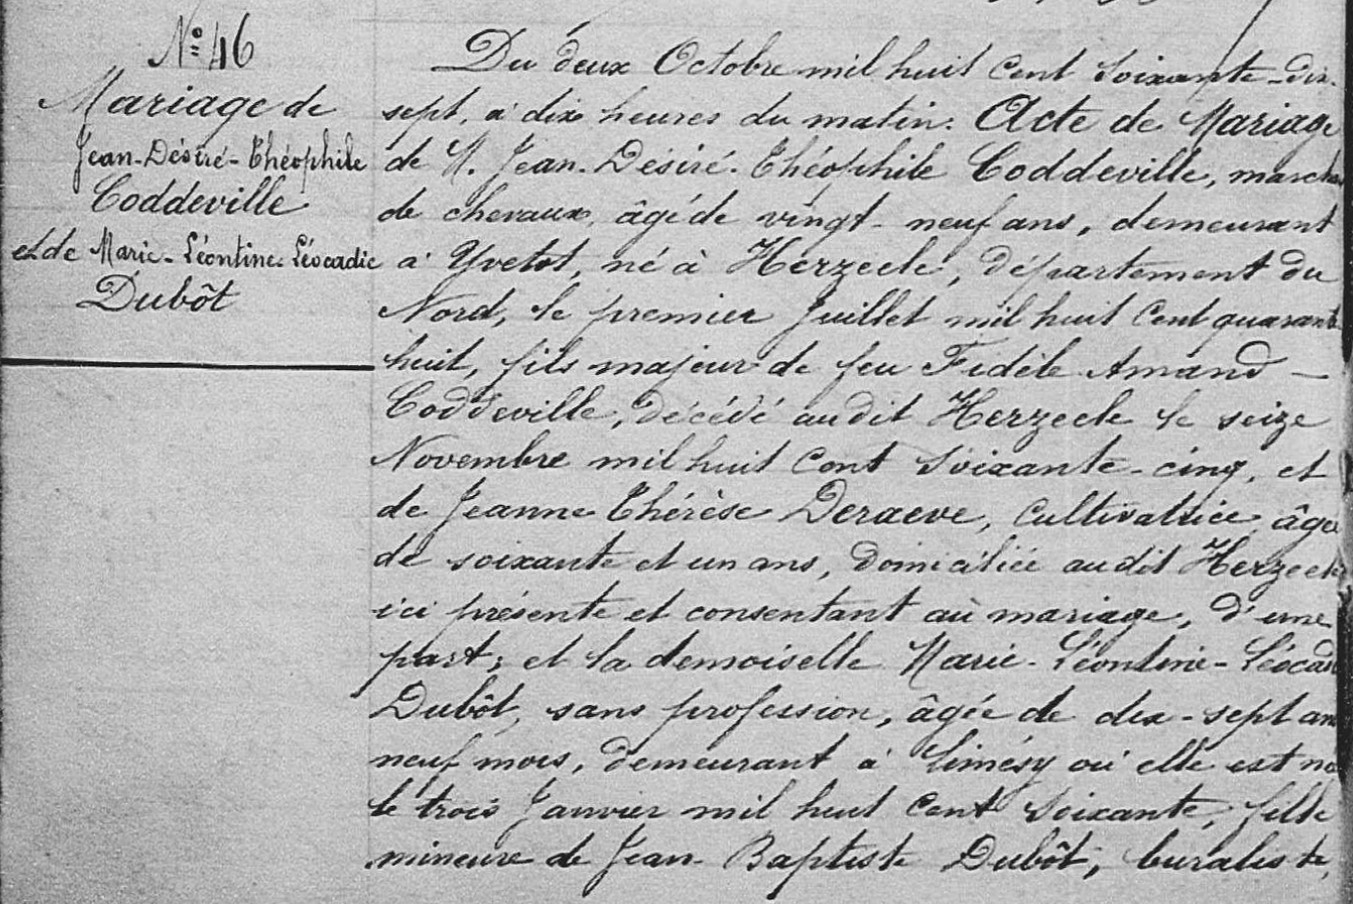 N° 46
Mariage de
Jean-Désiré-Théophile
Coddeville
et de Marie-Léontine-Léocadie
Dubôt
Du deux Octobre mil huit cent soixante-dix-
sept, à dix heures du matin. Acte de Mariage
de M. Jean-Désiré-Théophile Coddeville, marchand
de chevaux, âgé de vingt-neuf ans, demeurant
à Yvetot, né à Herzeele, département du
Nord, le premier Juillet mil huit cent quarante
huit, fils majeur de feu Fidèle Amand —
Coddeville, décédé audit Herzeele le seize
Novembre mil huit cent soixante-cinq, et
de Jeanne Thérèse Deraeve, cultivatrice, âgée
de soixante et un ans, domiciliée audit Herzeele
ici présente et consentant au mariage, d'une
part; et la demoiselle Marie-Léontine-Léocadie
Dubôt, sans profession, âgée de dix-sept ans
neuf mois, demeurant à Limésy où elle est née
le trois Janvier mil huit cent soixante, fille
mineure de Jean-Baptiste Dubôt, buraliste,